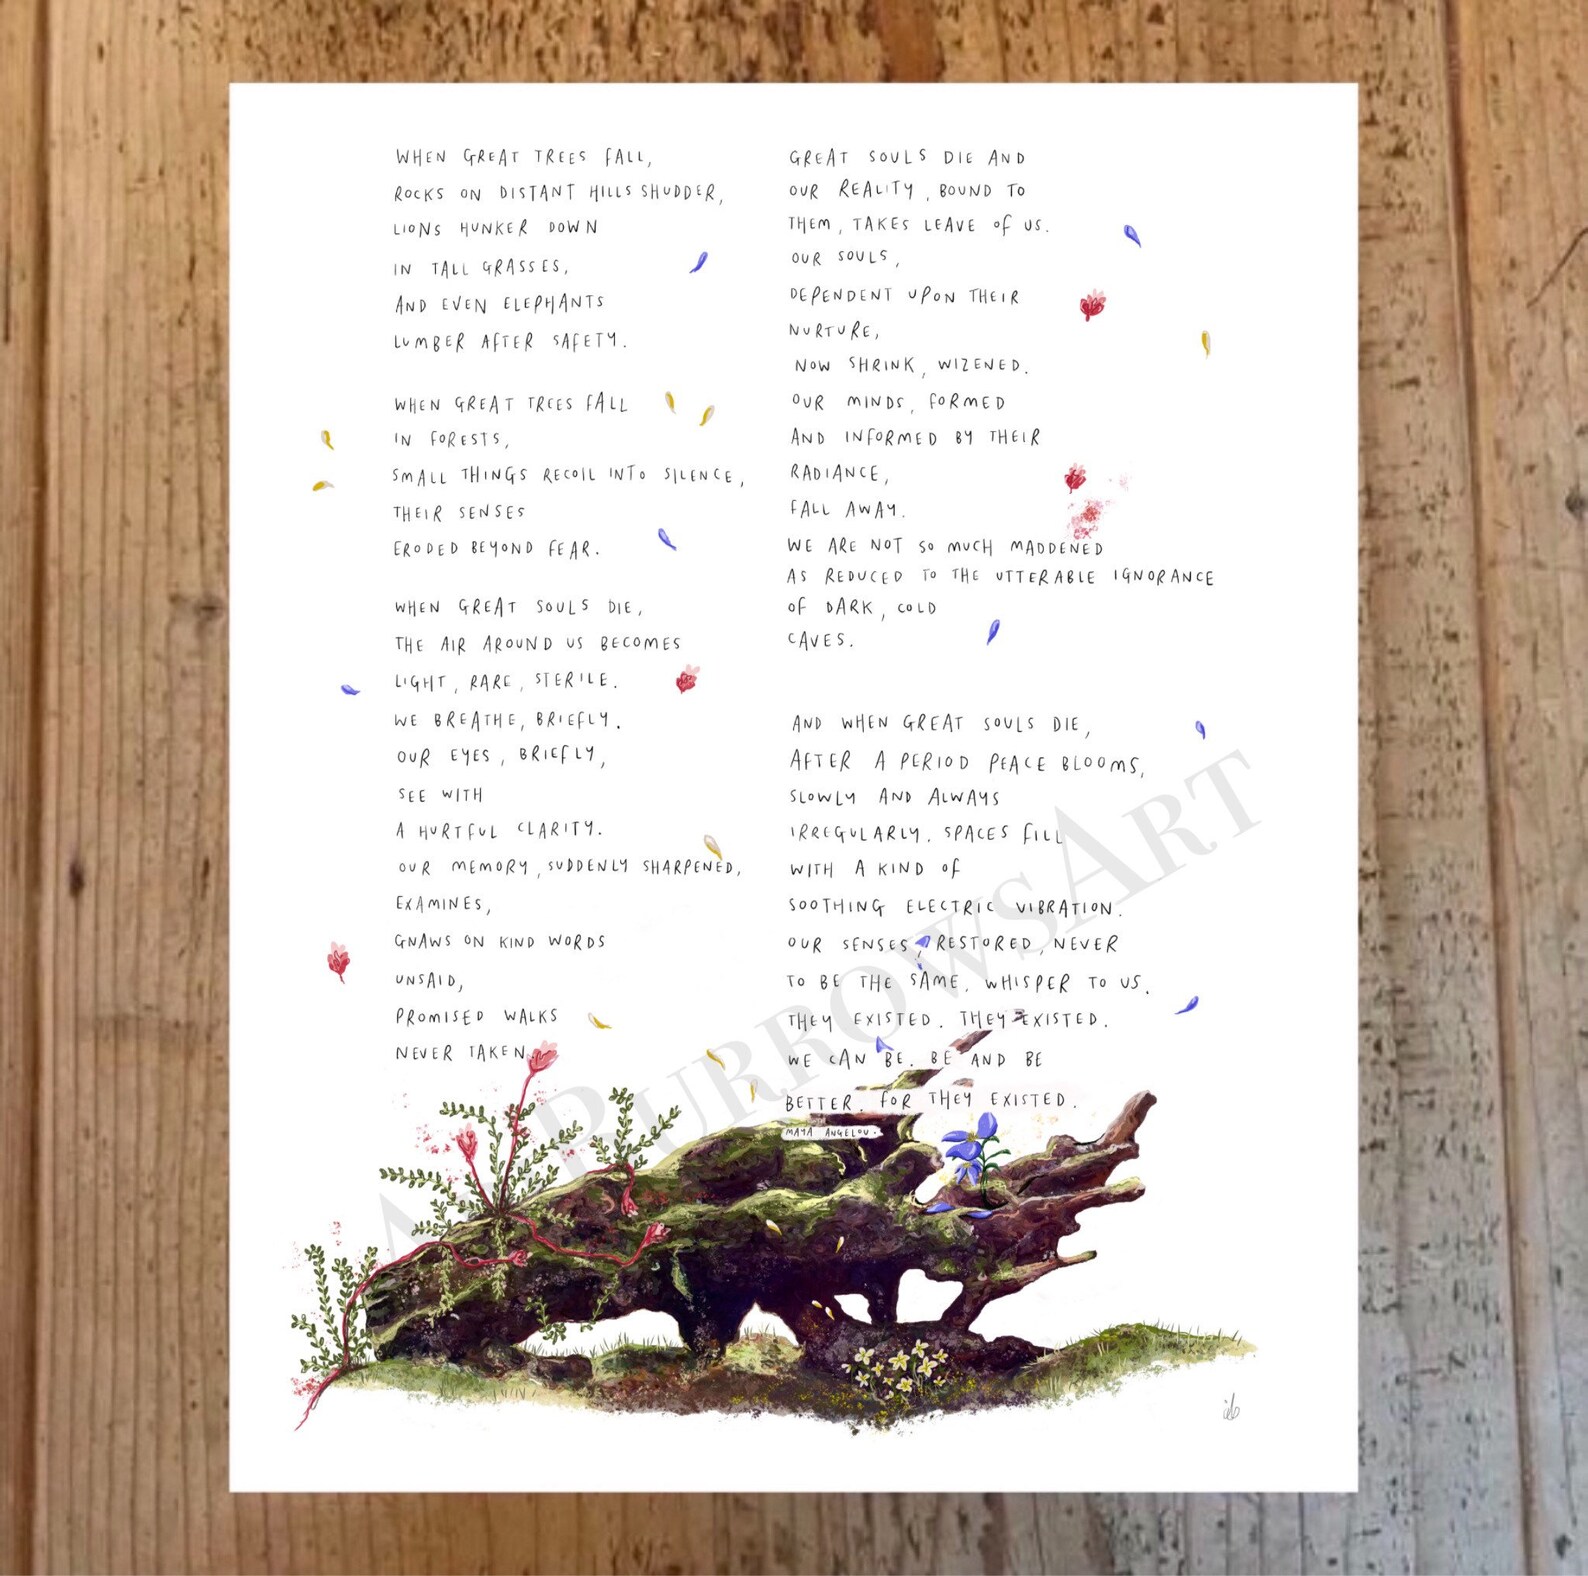 WHEN GREAT TREES FALL,
ROCKS ON DISTANT HILLS SHUDDER,
LIONS HUNKER DOWN
IN TALL GRASSES,
AND EVEN ELEPHANTS
LUMBER AFTER SAFETY.
WHEN GREAT TREES FALL
IN FORESTS,
SMALL THINGS RECOIL INTO SILENCE,
THEIR SENSES
ERODED BEYOND FEAR.
WHEN GREAT SOULS DIE,
THE AIR AROUND US BECOMES
LIGHT, RARE, STERILE.
WE BREATHE, BRIEFLY.
OUR EYES, BRIEFLY,
SEE WITH
A HURTFUL CLARITY.
OUR MEMORY, SUDDENLY SHARPENED,
EXAMINES,
GNAWS ON KIND WORDS
UNSAID,
PROMISED WALKS
NEVER TAKEN
GREAT SOULS DIE AND
OUR REALITY, BOUND TO
THEM, TAKES LEAVE OF US.
OUR SOULS,
DEPENDENT UPON THEIR
NURTURE,
NOW SHRINK, WIZENED.
OUR MINDS, FORMED
AND INFORMED BY THEIR
RADIANCE,
FALL AWAY.
WE ARE NOT SO MUCH MADDENED
AS REDUCED TO THE UTTERABLE IGNORANCE
OF DARK, COLD
CAVES.
AND WHEN GREAT SOULS DIE,
AFTER A PERIOD PEACE BLOOMS,
SLOWLY AND ALWAYS
IRREGULARLY. SPACES FILL
WITH A KIND OF
SOOTHING ELECTRIC VIBRATION.
OUR SENSES, RESTORED, NEVER
TO BE THE SAME, WHISPER TO US.
THEY EXISTED. THEY EXISTED.
WE CAN BE. BE AND BE
BETTER. FOR THEY EXISTED.
MAYA ANGELOU.
BURROWSART